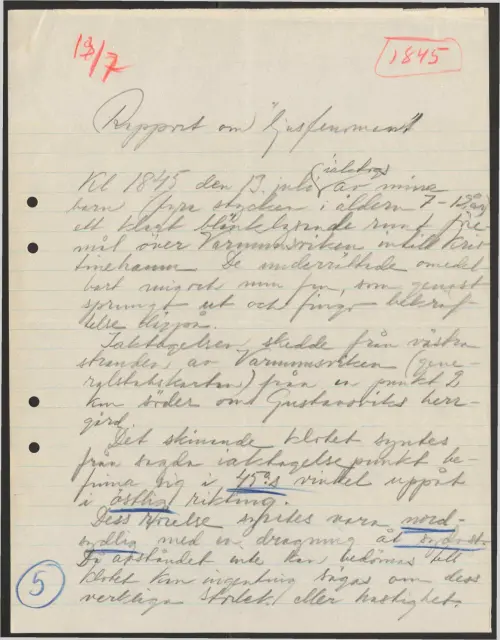 13/7
1845
Rapport om "ljusfenomen"
Kl 1845 den 13. juli (iakttogs) av mina
barn fyra stycken i åldern 7-13 år
ett klart blänkande runt före-
mål över Varnumsviken intill Kris-
tinehamn. De underrättade omedel
bart mig och min fru, som genast
sprungit ut och fingo bekräf-
telse
Iakttagelsen skedde från västra
stranden av Varnumsviken (gene-
ralstabskartan) från en punkt 2
km söder om Gustavsviks herr-
gård.
Det skinande klotet syntes
från sagda iakttagelsepunkt be-
finna sig i 45°:s vinkel uppåt
i östlig riktning.
Dess rörelse syntes vara nord-
sydlig med en dragning åt sydost.
Då avståndet inte kan bedömas till
klotet kan ingenting sägas om dess
verkliga storlek eller hastighet.
5